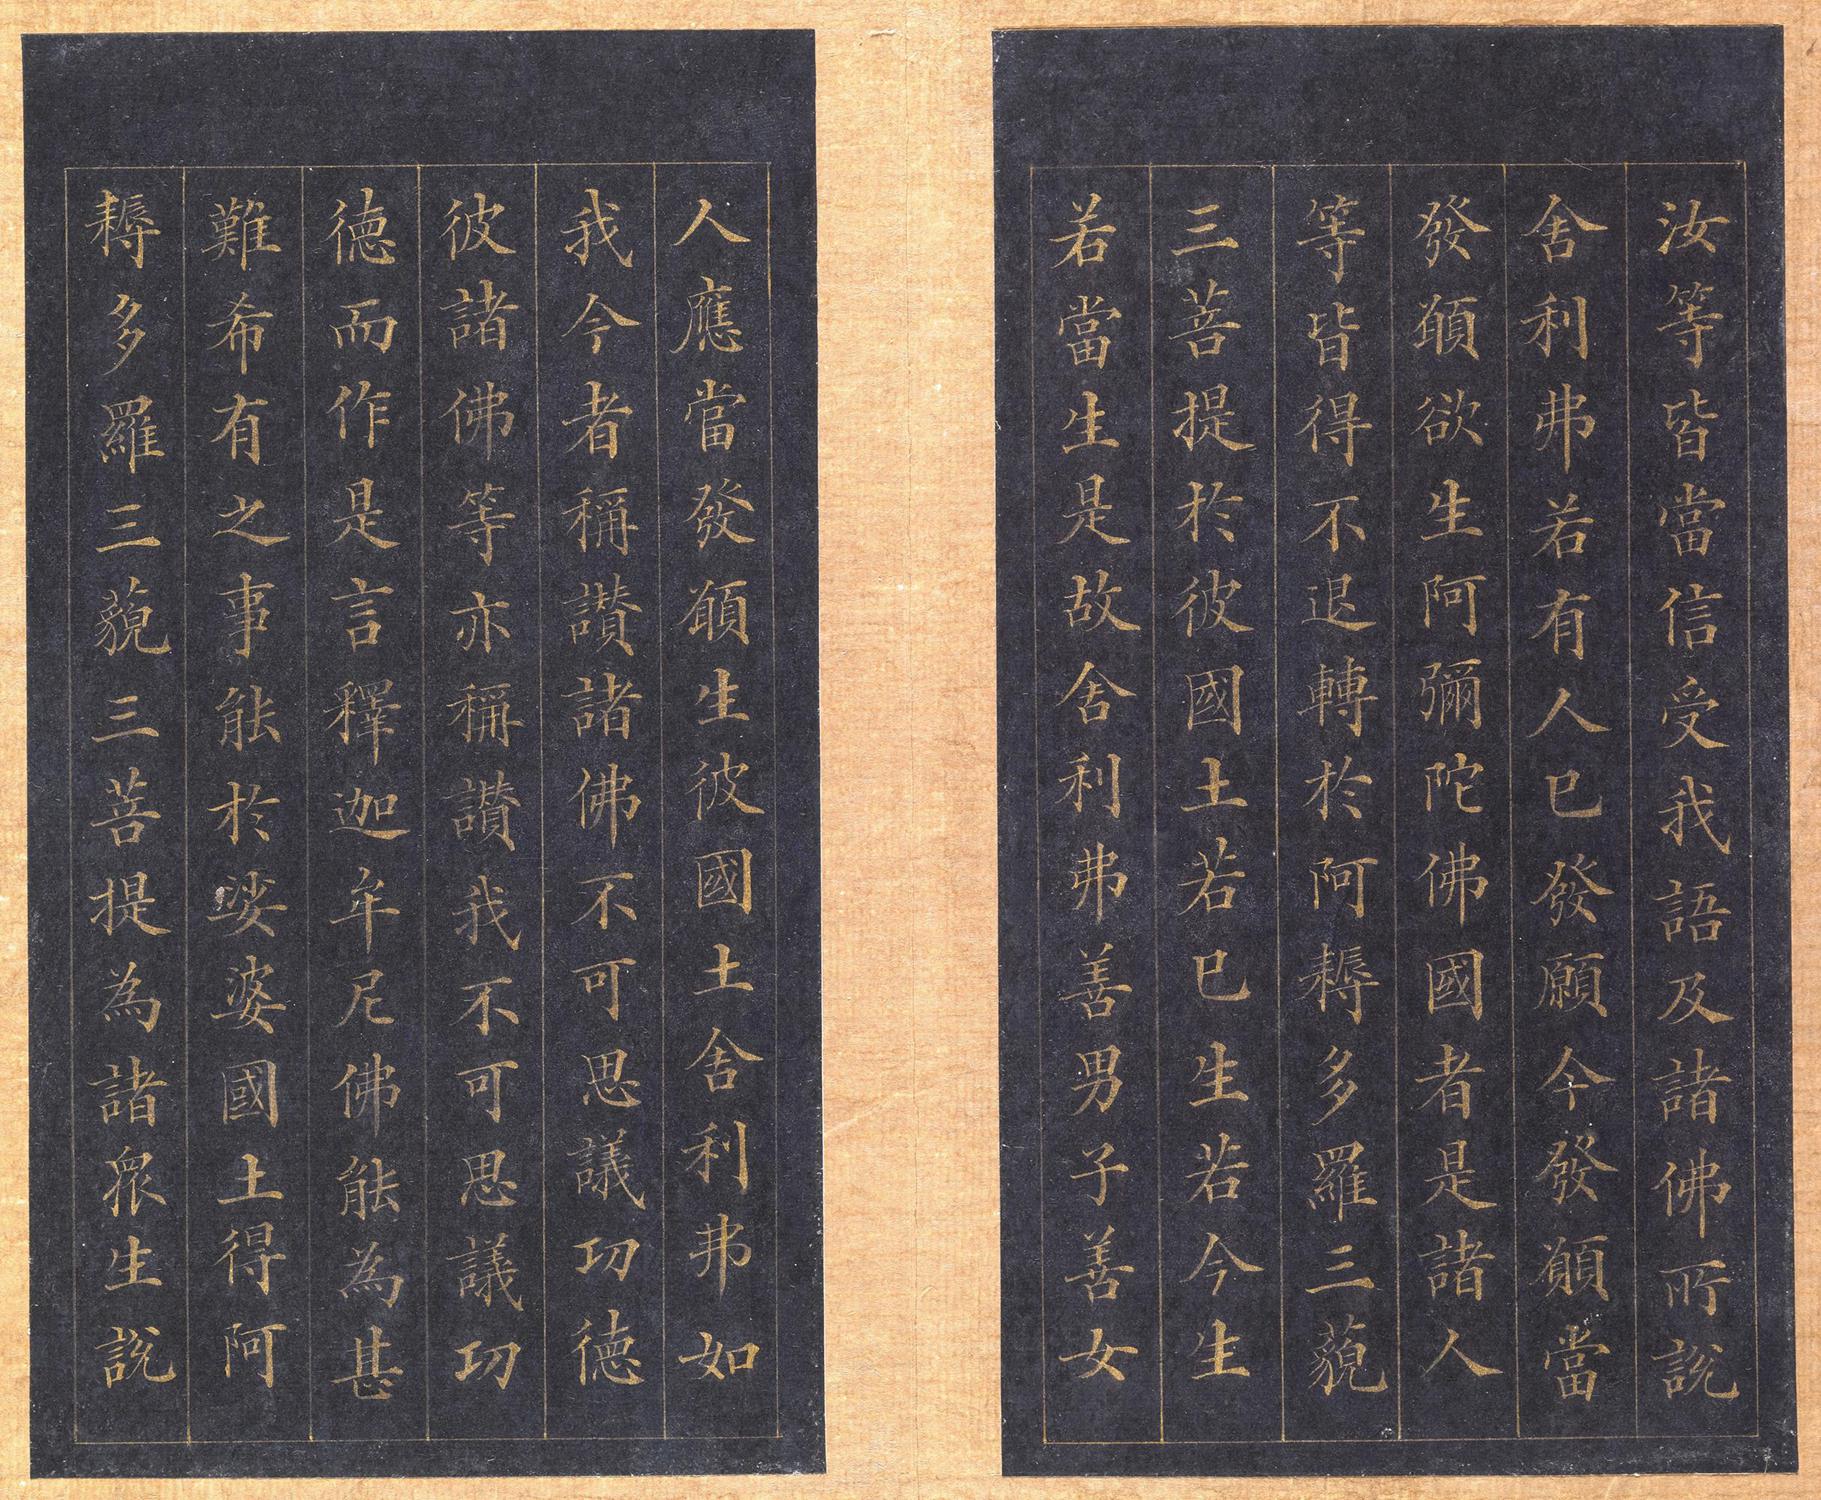 汝等皆當信受我語及諸佛所說
舍利弗若有人已發願今發願當
發願欲生阿彌陀佛國者是諸人
等皆得不退轉於阿耨多羅三藐
三菩提於彼國土若已生若今生
若當生是故舍利弗善男子善女
人應當發願生彼國土舍利弗如
我今者稱讚諸佛不可思議功德
彼諸佛等亦稱讚我不可思議功
德而作是言釋迦牟尼佛能為甚
難希有之事能於娑婆國土得阿
耨多羅三藐三菩提為諸眾生說